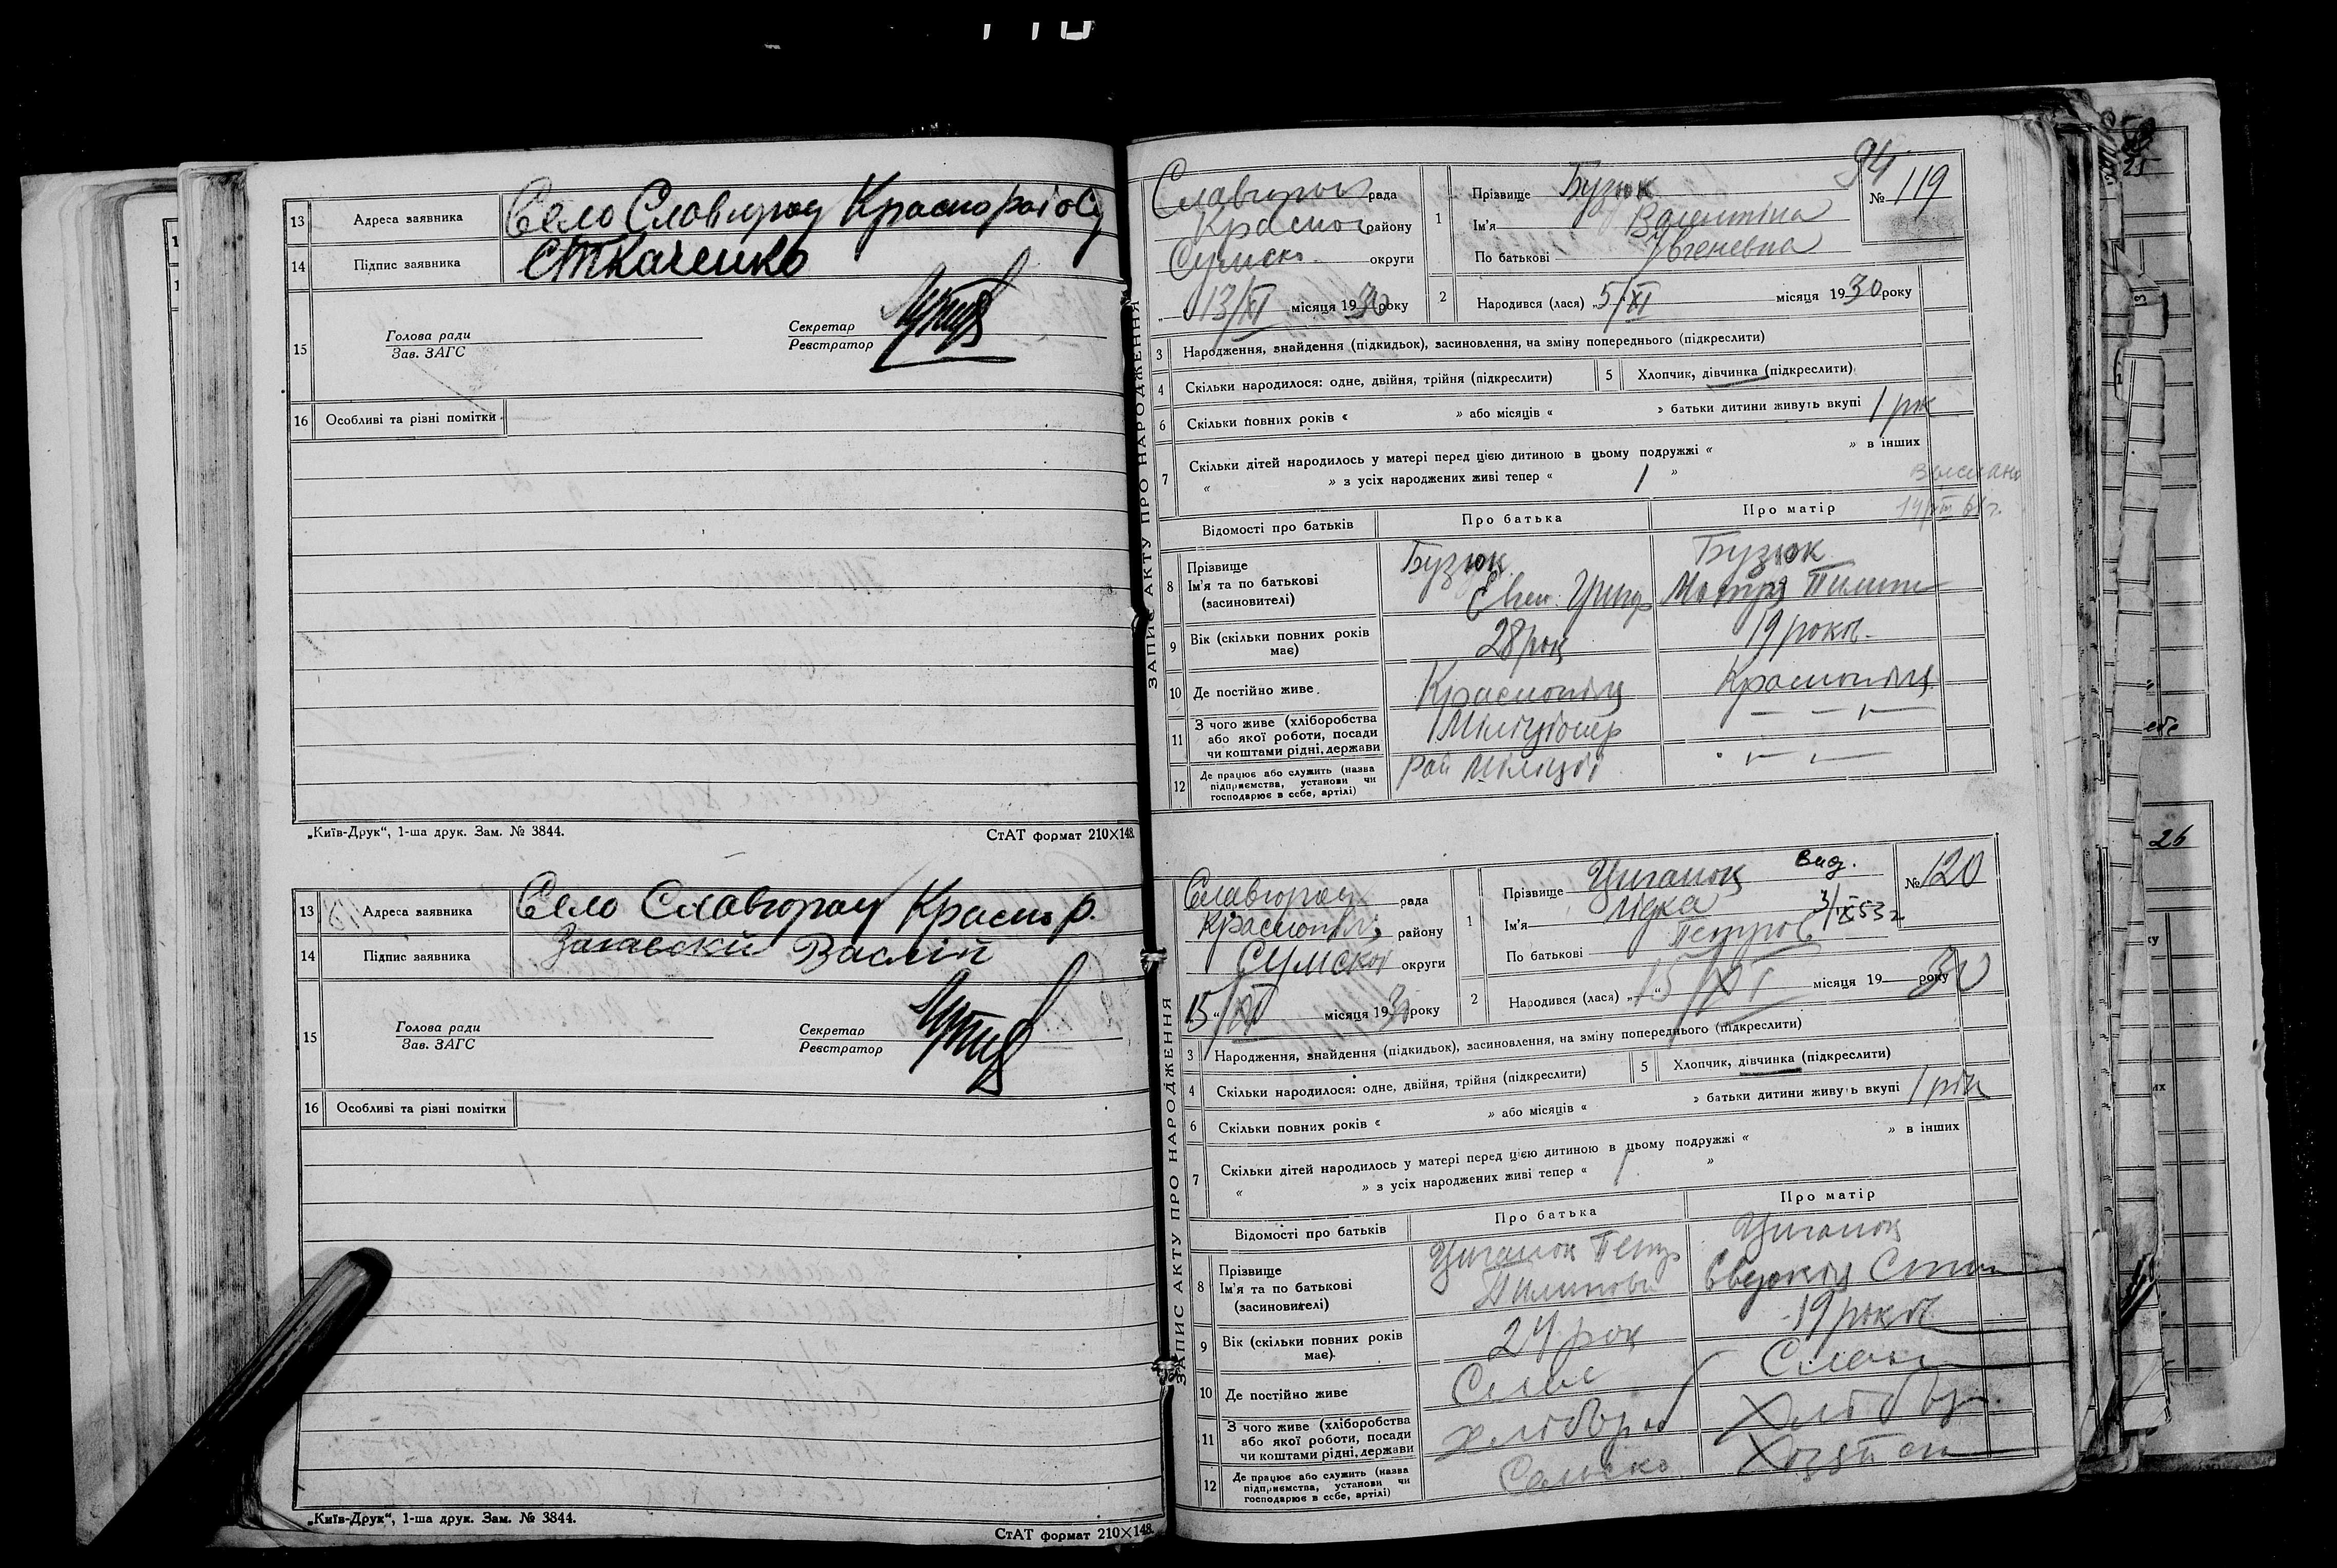 13 Адреса заявника Село Славгород
14 Підпис заявника СТкаченко
15 Голова ради
Зав. ЗАГС
Секретар
Реєстратор
16 Особливі та різні помітки
„Київ-Друк“, 1-ша друк. Зам. № 3844. СтАТ формат 210×148.
13 Адреса заявника Село Славгород Красноп р.
14 Підпис заявника
15 Голова ради
Зав. ЗАГС
Секретар
Реєстратор
16 Особливі та різні помітки
„Київ-Друк“, 1-ша друк. Зам. № 3844. СтАТ формат 210×148.
ЗАПИС АКТУ ПРО НАРОДЖЕННЯ
94
№ 119
Славгород рада
району
округи
13/XI місяця 1930 року
1 Прізвище Бузюк
Ім'я Валентіна
По батькові Євгеневна
2 Народився (лася) „5/XI місяця 1930 року
3 Народження, знайдення (підкидьок), засиновлення, на зміну попереднього (підкреслити)
4 Скільки народилося: одне, двійня, трійня (підкреслити) 5 Хлопчик, дівчинка (підкреслити)
6 Скільки повних років « » або місяців « » батьки дитини живуть вкупі 1 рік
7 Скільки дітей народилось у матері перед цією дитиною в цьому подружжі « » в інших
« » з усіх народжених живі тепер « 1 »
Відомості про батьків Про батька Про матір
8 Прізвище Бузюк Бузюк
Ім'я та по батькові
(засиновителі)
9 Вік (скільки повних років має) 28 рок 19 років
10 Де постійно живе Краснопілл Краснопілл
11 З чого живе (хліборобства або якої роботи, посади чи коштами рідні, держави Міліціонер
12 Де працює або служить (назва підприємства, установи чи господарює в себе, артілі) Рай Міліції
ЗАПИС АКТУ ПРО НАРОДЖЕННЯ
№ 120
Славгород рада
району
Сумської округи
15/XI місяця 1930 року
1 Прізвище Циганок Вид.
Ім'я Лідка 3/IX 53 г
По батькові Петров
2 Народився (лася) „15/XI місяця 1930 року
3 Народження, знайдення (підкидьок), засиновлення, на зміну попереднього (підкреслити)
4 Скільки народилося: одне, двійня, трійня (підкреслити) 5 Хлопчик, дівчинка (підкреслити)
6 Скільки повних років « » або місяців « » батьки дитини живуть вкупі 1 рік
7 Скільки дітей народилось у матері перед цією дитиною в цьому подружжі « » в інших
« » з усіх народжених живі тепер « »
Відомості про батьків Про батька Про матір
8 Прізвище Циганок Петр Циганок
Ім'я та по батькові
(засиновителі)
9 Вік (скільки повних років має) 24 рок 19 років
10 Де постійно живе
11 З чого живе (хліборобства або якої роботи, посади чи коштами рідні, держави Хлібороб
12 Де працює або служить (назва підприємства, установи чи господарює в себе, артілі)
25
26